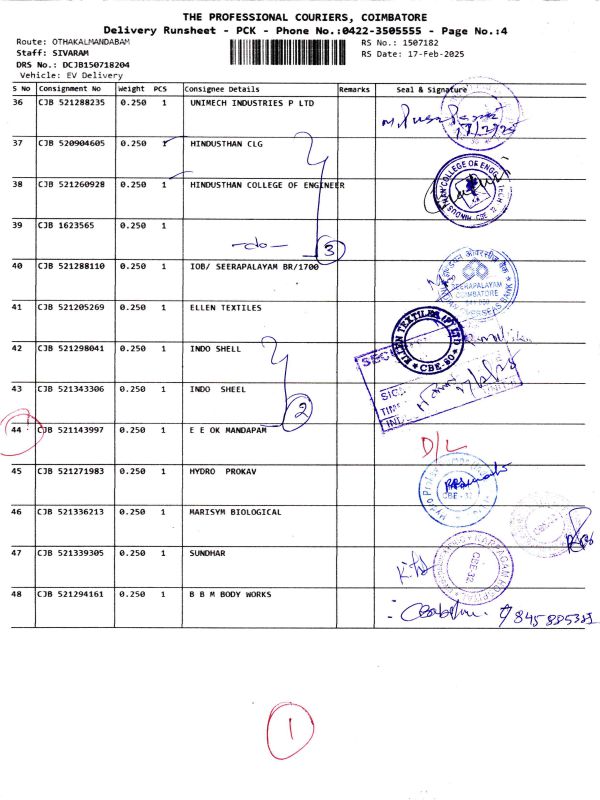 THE PROFESSIONAL COURIERS, COIMBATORE
Delivery Runsheet - PCK - Phone No.:0422-3505555 - Page No.:4
Route: OTHAKALMANDABAM
RS No.: 1507182
Staff: SIVARAM
RS Date: 17-Feb-2025
DRS No.: DCJB150718204
Vehicle: EV Delivery
S No Consignment No Weight PCS Consignee Details Remarks Seal & Signature
36 CJB 521288235 0.250 1 UNIMECH INDUSTRIES P LTD
37 CJB 520904605 0.250 1 HINDUSTHAN CLG
38 CJB 521260928 0.250 1 HINDUSTHAN COLLEGE OF ENGINEER
39 CJB 1623565 0.250 1
-do- 3
40 CJB 521288110 0.250 1 IOB/ SEERAPALAYAM BR/1700
SEERAPALAYAM
COIMBATORE
41 CJB 521205269 0.250 1 ELLEN TEXTILES
ELLEN TEXTILES (P) LTD
CBE-80
42 CJB 521298041 0.250 1 INDO SHELL
43 CJB 521343306 0.250 1 INDO SHEEL
2
44 CJB 521143997 0.250 1 E E OK MANDAPAM
D/L
45 CJB 521271983 0.250 1 HYDRO PROKAV
CBE-32
46 CJB 521336213 0.250 1 MARISYM BIOLOGICAL
47 CJB 521339305 0.250 1 SUNDHAR
CBE-32.
48 CJB 521294161 0.250 1 B B M BODY WORKS
1